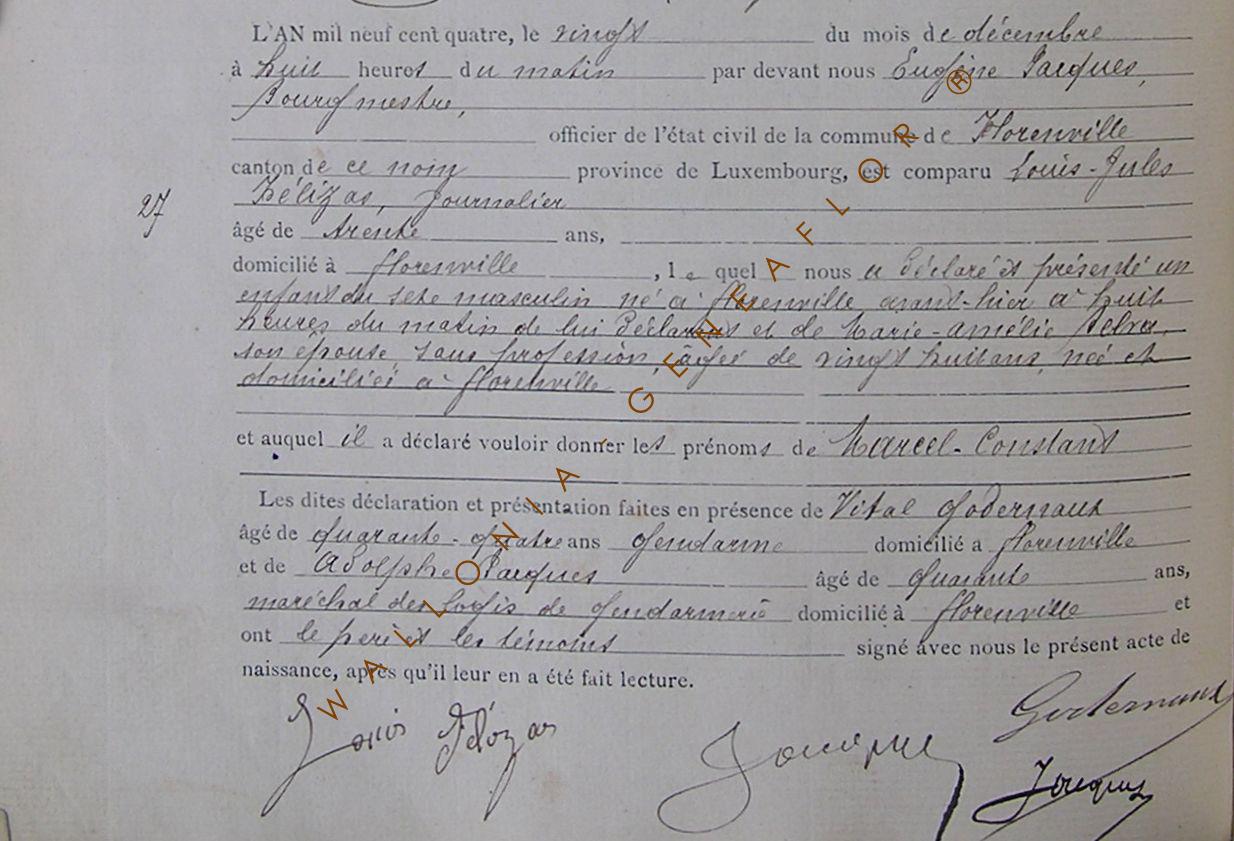 L'AN mil neuf cent quatre, le vingt du mois de décembre
à huit heures du matin par devant nous Eugène Jacques,
Bourgmestre,
officier de l'état civil de la commune de Florenville
canton de ce nom province de Luxembourg, est comparu Louis-Jules
27
journalier
âgé de trente ans,
domicilié à florenville, lequel nous a déclaré et présenté un
enfant du sexe masculin né à florenville avant-hier à huit
heures du matin de lui déclarant et de Marie-Amélie
son épouse sans profession, âgée de vingt huit ans, née et
domiciliée à florenville
et auquel il a déclaré vouloir donner les prénoms de Marcel-Constant
Les dites déclaration et présentation faites en présence de Vital Godernaux
âgé de quarante-quatre ans gendarme domicilié a florenville
et de Adolphe Jacques âgé de quarante ans,
maréchal des logis de gendarmerie domicilié à florenville et
ont le père et les témoins signé avec nous le présent acte de
naissance, après qu'il leur en a été fait lecture.
Louis Jacques Godernaux
Jacques
WALLONIA - GENEAFLOR ®